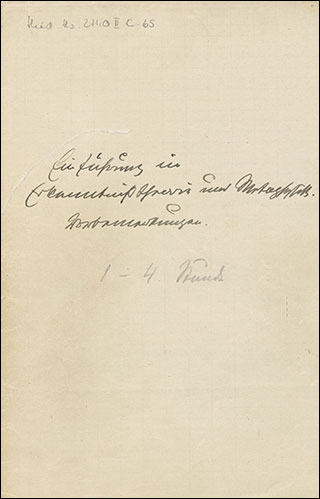 Einführung in
Erkenntnißtheorie und Metaphysik.
Vorbemerkungen.
1 – 4. Stunde